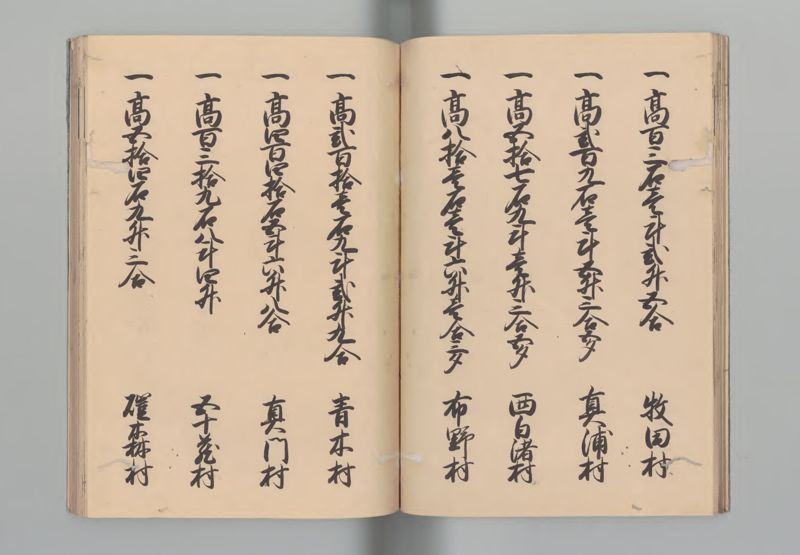 一 高百三石壱斗弐升五合 牧田村
一 高弐百九石壱斗五升三合五夕 真浦村
一 高五拾七石九斗壱升三合五夕 西白渚村
一 高八拾壱石壱斗六升壱合三夕 布野村
一 高弐百拾壱石九斗弐升九合 青木村
一 高四百四拾石五斗六升八合 真門村
一 高百三拾九石八斗四升 五十蔵村
一 高五拾四石九升三合 礒森村